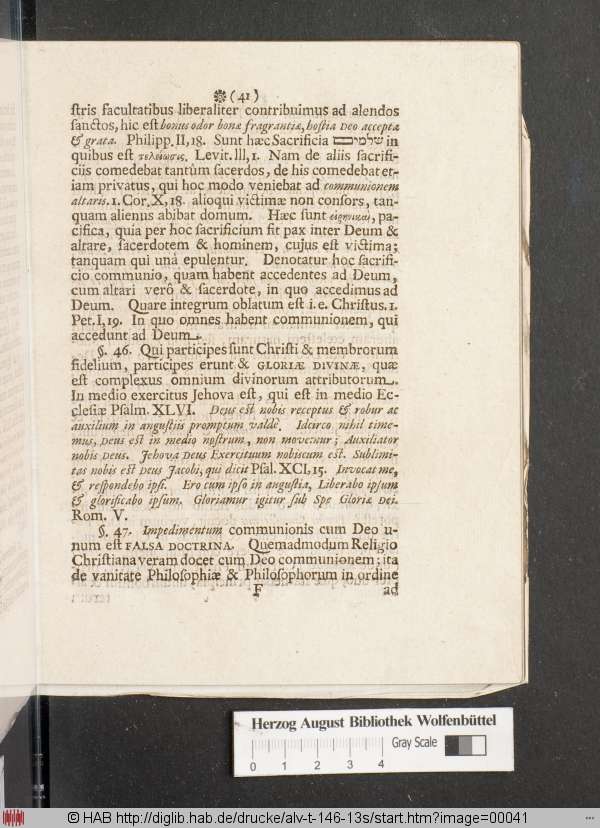 ❁ (41)
ſtris facultatibus liberaliter contribuimus ad alendos
ſanctos, hic eſt bonus odor bonæ fragrantiæ, hoſtia Deo acceptæ
& grata. Philipp. II, 18. Sunt hæc Sacrificia שלמים in
quibus eſt τελείωσις. Levit. III, 1. Nam de aliis ſacrifi-
ciis comedebat tantùm ſacerdos, de his comedebat et-
iam privatus, qui hoc modo veniebat ad communionem
altaris. 1. Cor. X, 18. alioqui victimæ non conſors, tan-
quam alienus abibat domum. Hæc ſunt εἰρηνικαὶ, pa-
cifica, quia per hoc ſacrificium fit pax inter Deum &
altare, ſacerdotem & hominem, cujus eſt victima;
tanquam qui unà epulentur. Denotatur hoc ſacrifi-
cio communio, quam habent accedentes ad Deum,
cum altari verô & ſacerdote, in quo accedimus ad
Deum. Quare integrum oblatum eſt i.e. Chriſtus. 1.
Pet. I, 19. In quo omnes habent communionem, qui
accedunt ad Deum.
§. 46. Qui participes ſunt Chriſti & membrorum
fidelium, participes erunt & GLORIÆ DIVINÆ, quæ
eſt complexus omnium divinorum attributorum.
In medio exercitus Jehova eſt, qui eſt in medio Ec-
cleſiæ Pſalm. XLVI. Deus eſt nobis receptus & robur ac
auxilium in anguſtiis promptum valdè. Idcirco nihil time-
mus, Deus eſt in medio noſtrum, non movemur; Auxiliator
nobis Deus. Jehova Deus Exercituum nobiscum eſt. Sublimi-
tas nobis eſt Deus Jacobi, qui dicit Pſal. XCI, 15. Invocat me,
& reſpondebo ipſi. Ero cum ipſo in anguſtia, Liberabo ipſum
& glorificabo ipſum. Gloriamur igitur ſub Spe Gloriæ Dei.
Rom. V.
§. 47. Impedimentum communionis cum Deo u-
num eſt FALSA DOCTRINA. Quemadmodum Religio
Chriſtiana veram docet cum Deo communionem; ita
de vanitate Philoſophiæ & Philoſophorum in ordine
F ad
Herzog August Bibliothek Wolfenbüttel
Gray Scale
0 1 2 3 4
© HAB http://diglib.hab.de/drucke/alv-t-146-13s/start.htm?image=00041